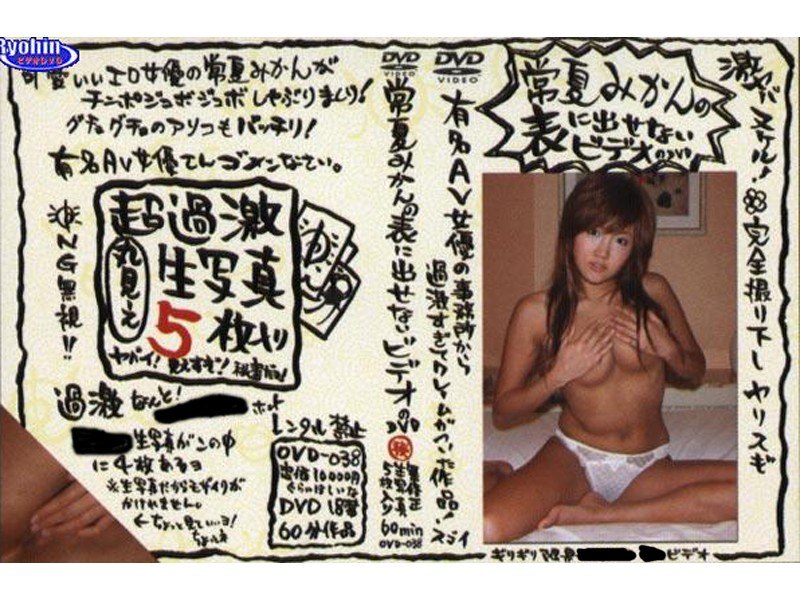 Ryohin
ビデオDVD
可愛いいエロ女優の常夏みかんが
チンポジュボジュボしゃぶりまくり!
グチョグチョのアソコもバッチリ!
有名AV女優でんゴメンなてい。
NG無視!!
超過激
丸見え
生写真
5枚入り
ヤバイ!見えすぎ!
過激なんと!
生写真がこの中
に4枚あるヨ
※生写真だからモザイクが
かけれません。
←ちょっと見ていいヨ!
レンタル禁止
OVD-038
定価10000円
ぐらいほしいな
DVD 18禁
60分作品
DVD
VIDEO
常夏みかんの表に出せないビデオのDVD
無修正
生写真
5枚入り
60min
OVD-038
DVD
VIDEO
有名AV女優の事務所から
過激すぎてクレームがついた作品!スゴイ
常夏みかんの
表に出せない
ビデオのDVD
激ヤバヌケル!完全撮り下しヤリスギ
ギリギリ
ビデオ